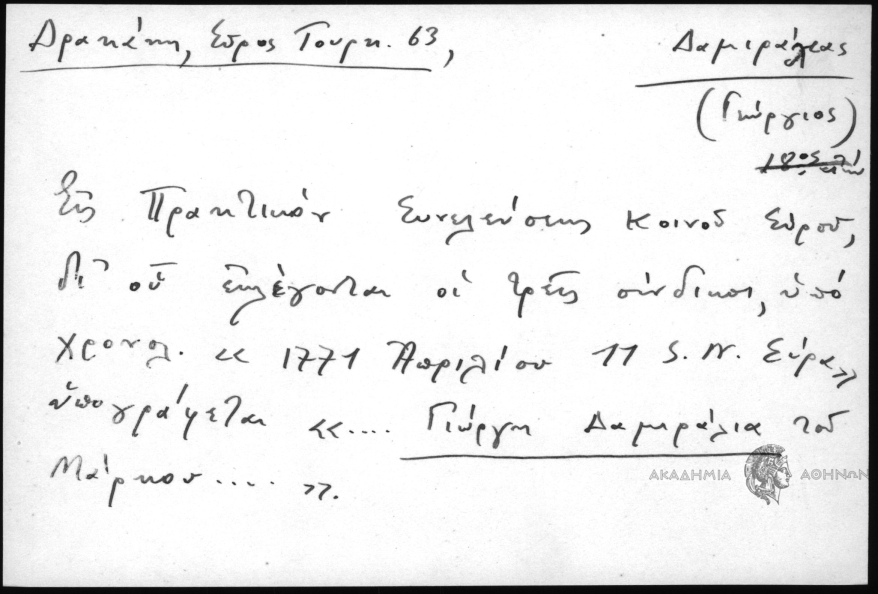 Δρακάκη, Σύρος Τουρκ. 63,
Δαμιράλιας
(Γεώργιος)
Εἰς Πρακτικὸν Συνελεύσεως Κοινοῦ Σύρου,
δι' οὗ ἐκλέγονται οἱ τρεῖς σύνδικοι, ὑπὸ
χρονολ. « 1771 Ἀπριλίου 11 S. N. Σύρα»
ὑπογράφεται «.... Γιώργη Δαμηράλια τοῦ
Μάρκου .... ».
ΑΚΑΔΗΜΙΑ ΑΘΗΝΩΝ